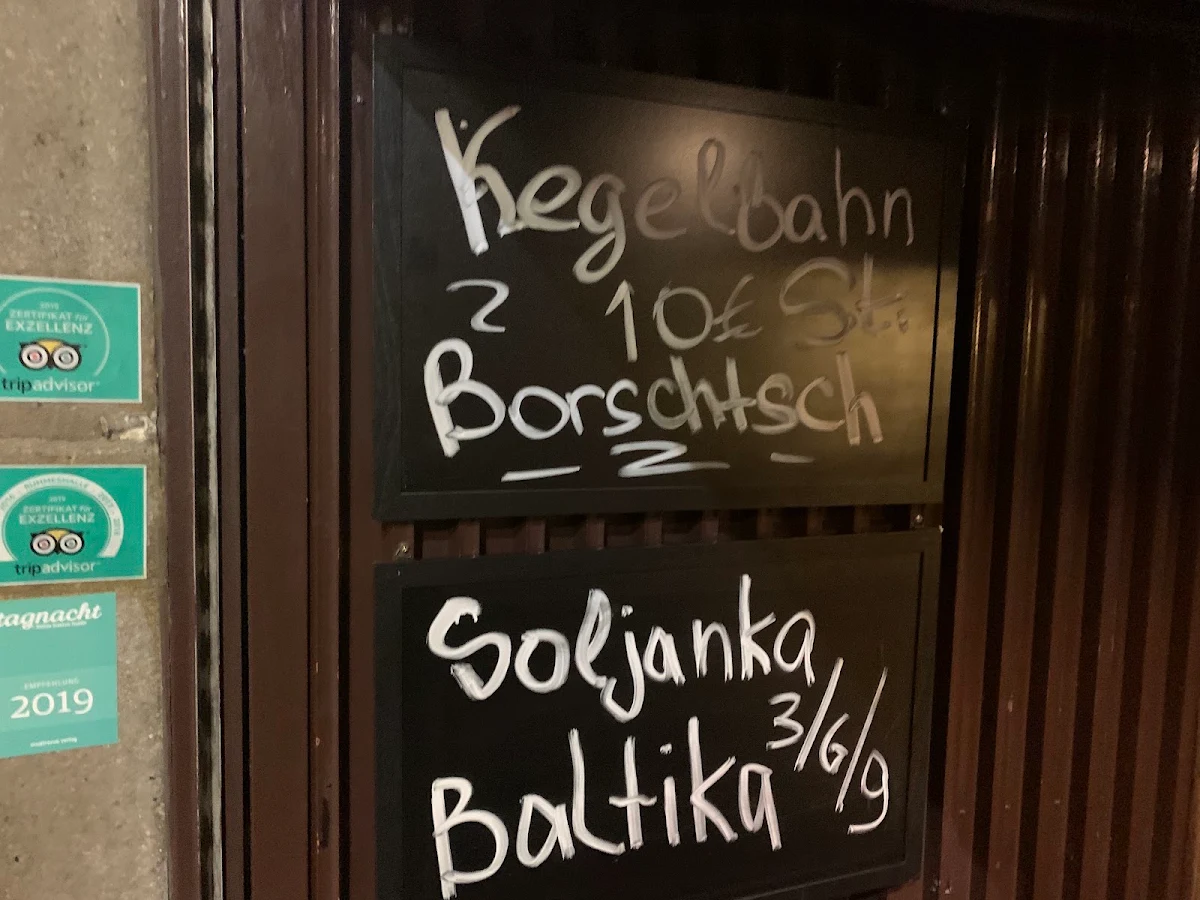 Kegelbahn
10€ St.
Borschtsch
Soljanka
Baltika 3/6/9
2019
ZERTIFIKAT für
EXZELLENZ
tripadvisor
2019
ZERTIFIKAT für
EXZELLENZ
tripadvisor
tagnacht
EMPFEHLUNG
2019